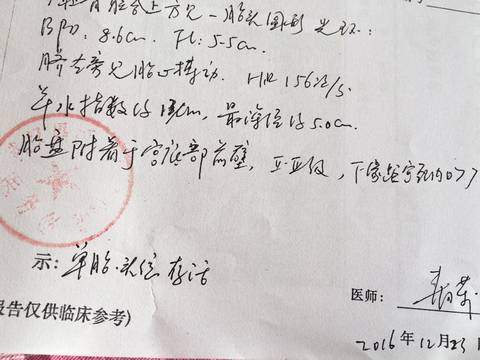 耻骨联合上方见一胎头圆形光环:
BPD: 8.6cm. FL: 5.5cm.
脐左旁见胎心搏动. HR 156次/分.
羊水指数约 cm, 最深径约5.0cm.
胎盘附着于宫底部前壁, II-III级, 下缘距宫颈内口>7
示: 单胎.头位 存活
医师:
报告仅供临床参考)
2016年12月23日